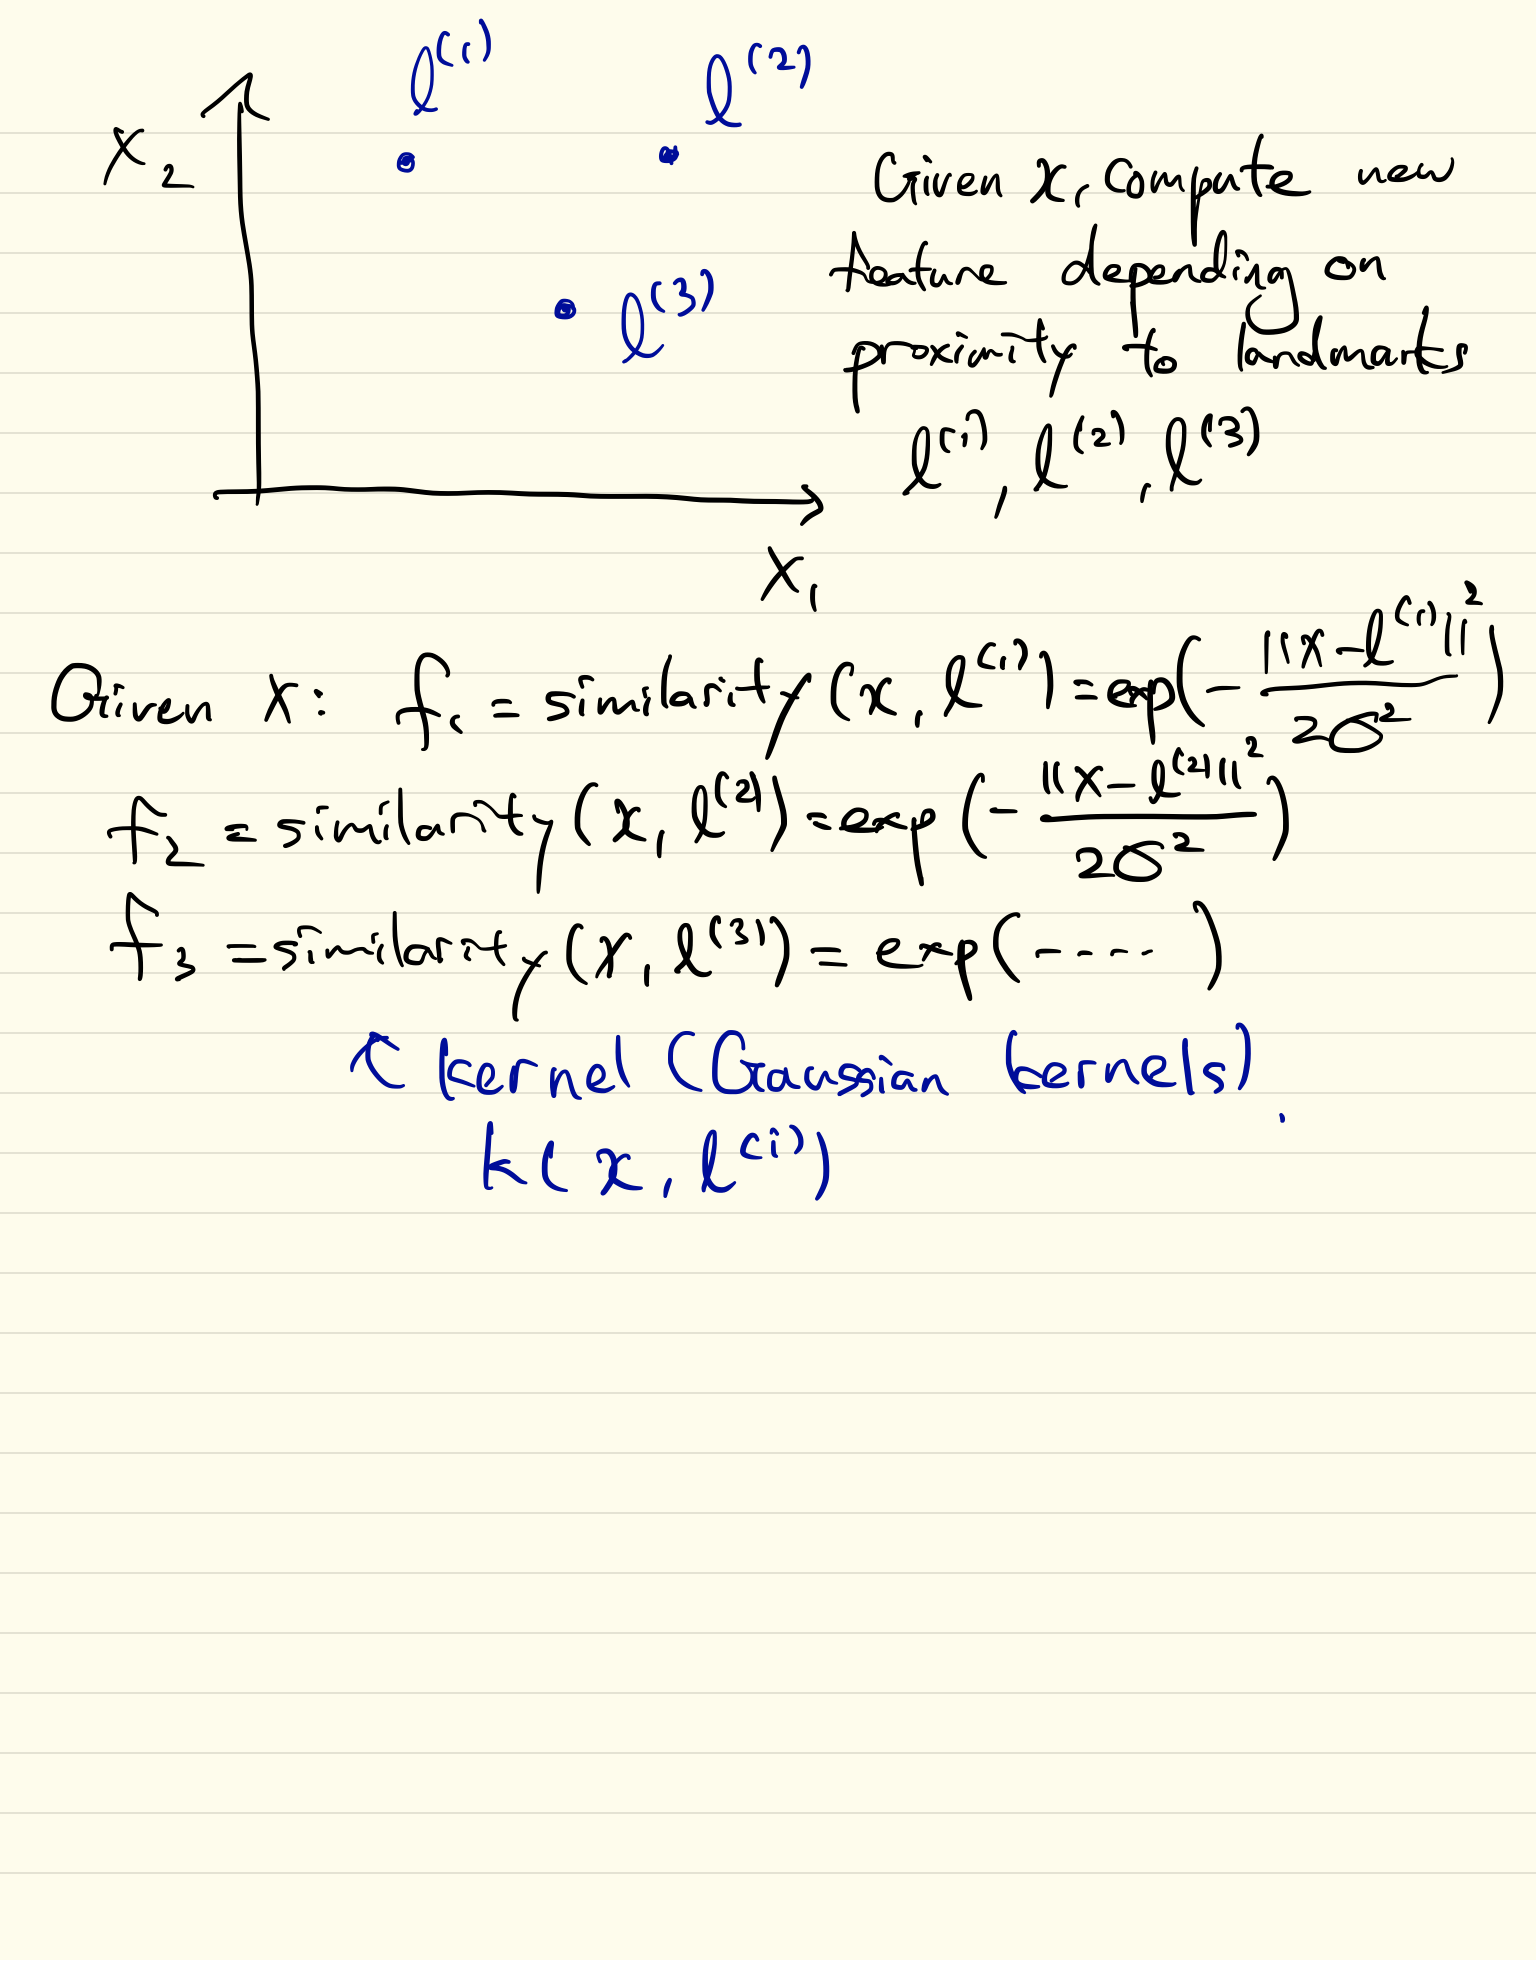 l^(1)
l^(2)
x_2
l^(3)
x_1
Given x, compute new
feature depending on
proximity to landmarks
l^(1), l^(2), l^(3)
Given x: f_1 = similarity(x, l^(1)) = exp(- ||x - l^(1)||^2 / 2σ^2)
f_2 = similarity(x, l^(2)) = exp(- ||x - l^(2)||^2 / 2σ^2)
f_3 = similarity(x, l^(3)) = exp(- - - -)
↑ kernel (Gaussian kernels).
k(x, l^(i))